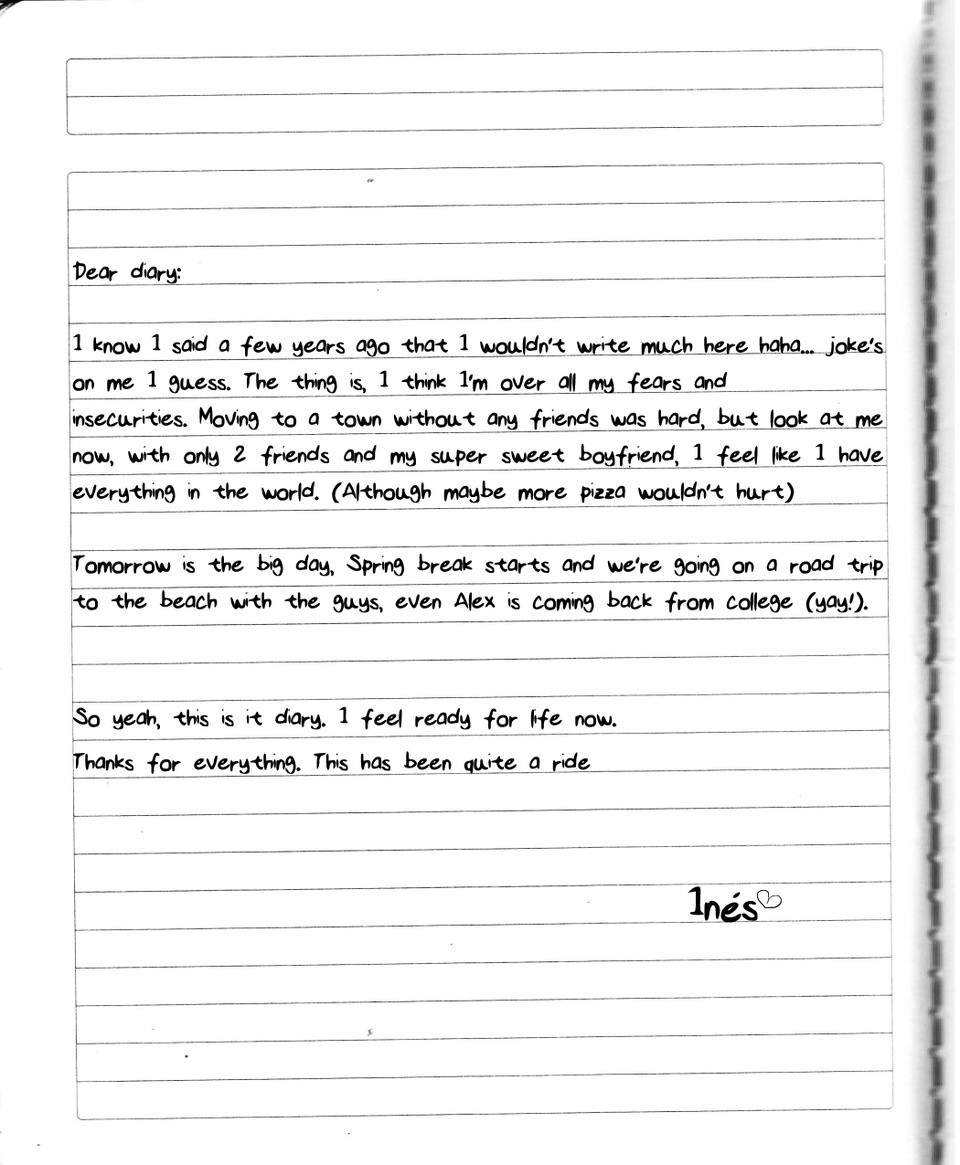 Dear diary:
I know I said a few years ago that I wouldn't write much here haha... joke's
on me I guess. The thing is, I think I'm over all my fears and
insecurities. Moving to a town without any friends was hard, but look at me
now, with only 2 friends and my super sweet boyfriend, I feel like I have
everything in the world. (Although maybe more pizza wouldn't hurt)
Tomorrow is the big day, Spring break starts and we're going on a road trip
to the beach with the guys, even Alex is coming back from college (yay!).
So yeah, this is it diary. I feel ready for life now.
Thanks for everything. This has been quite a ride
Inés♡